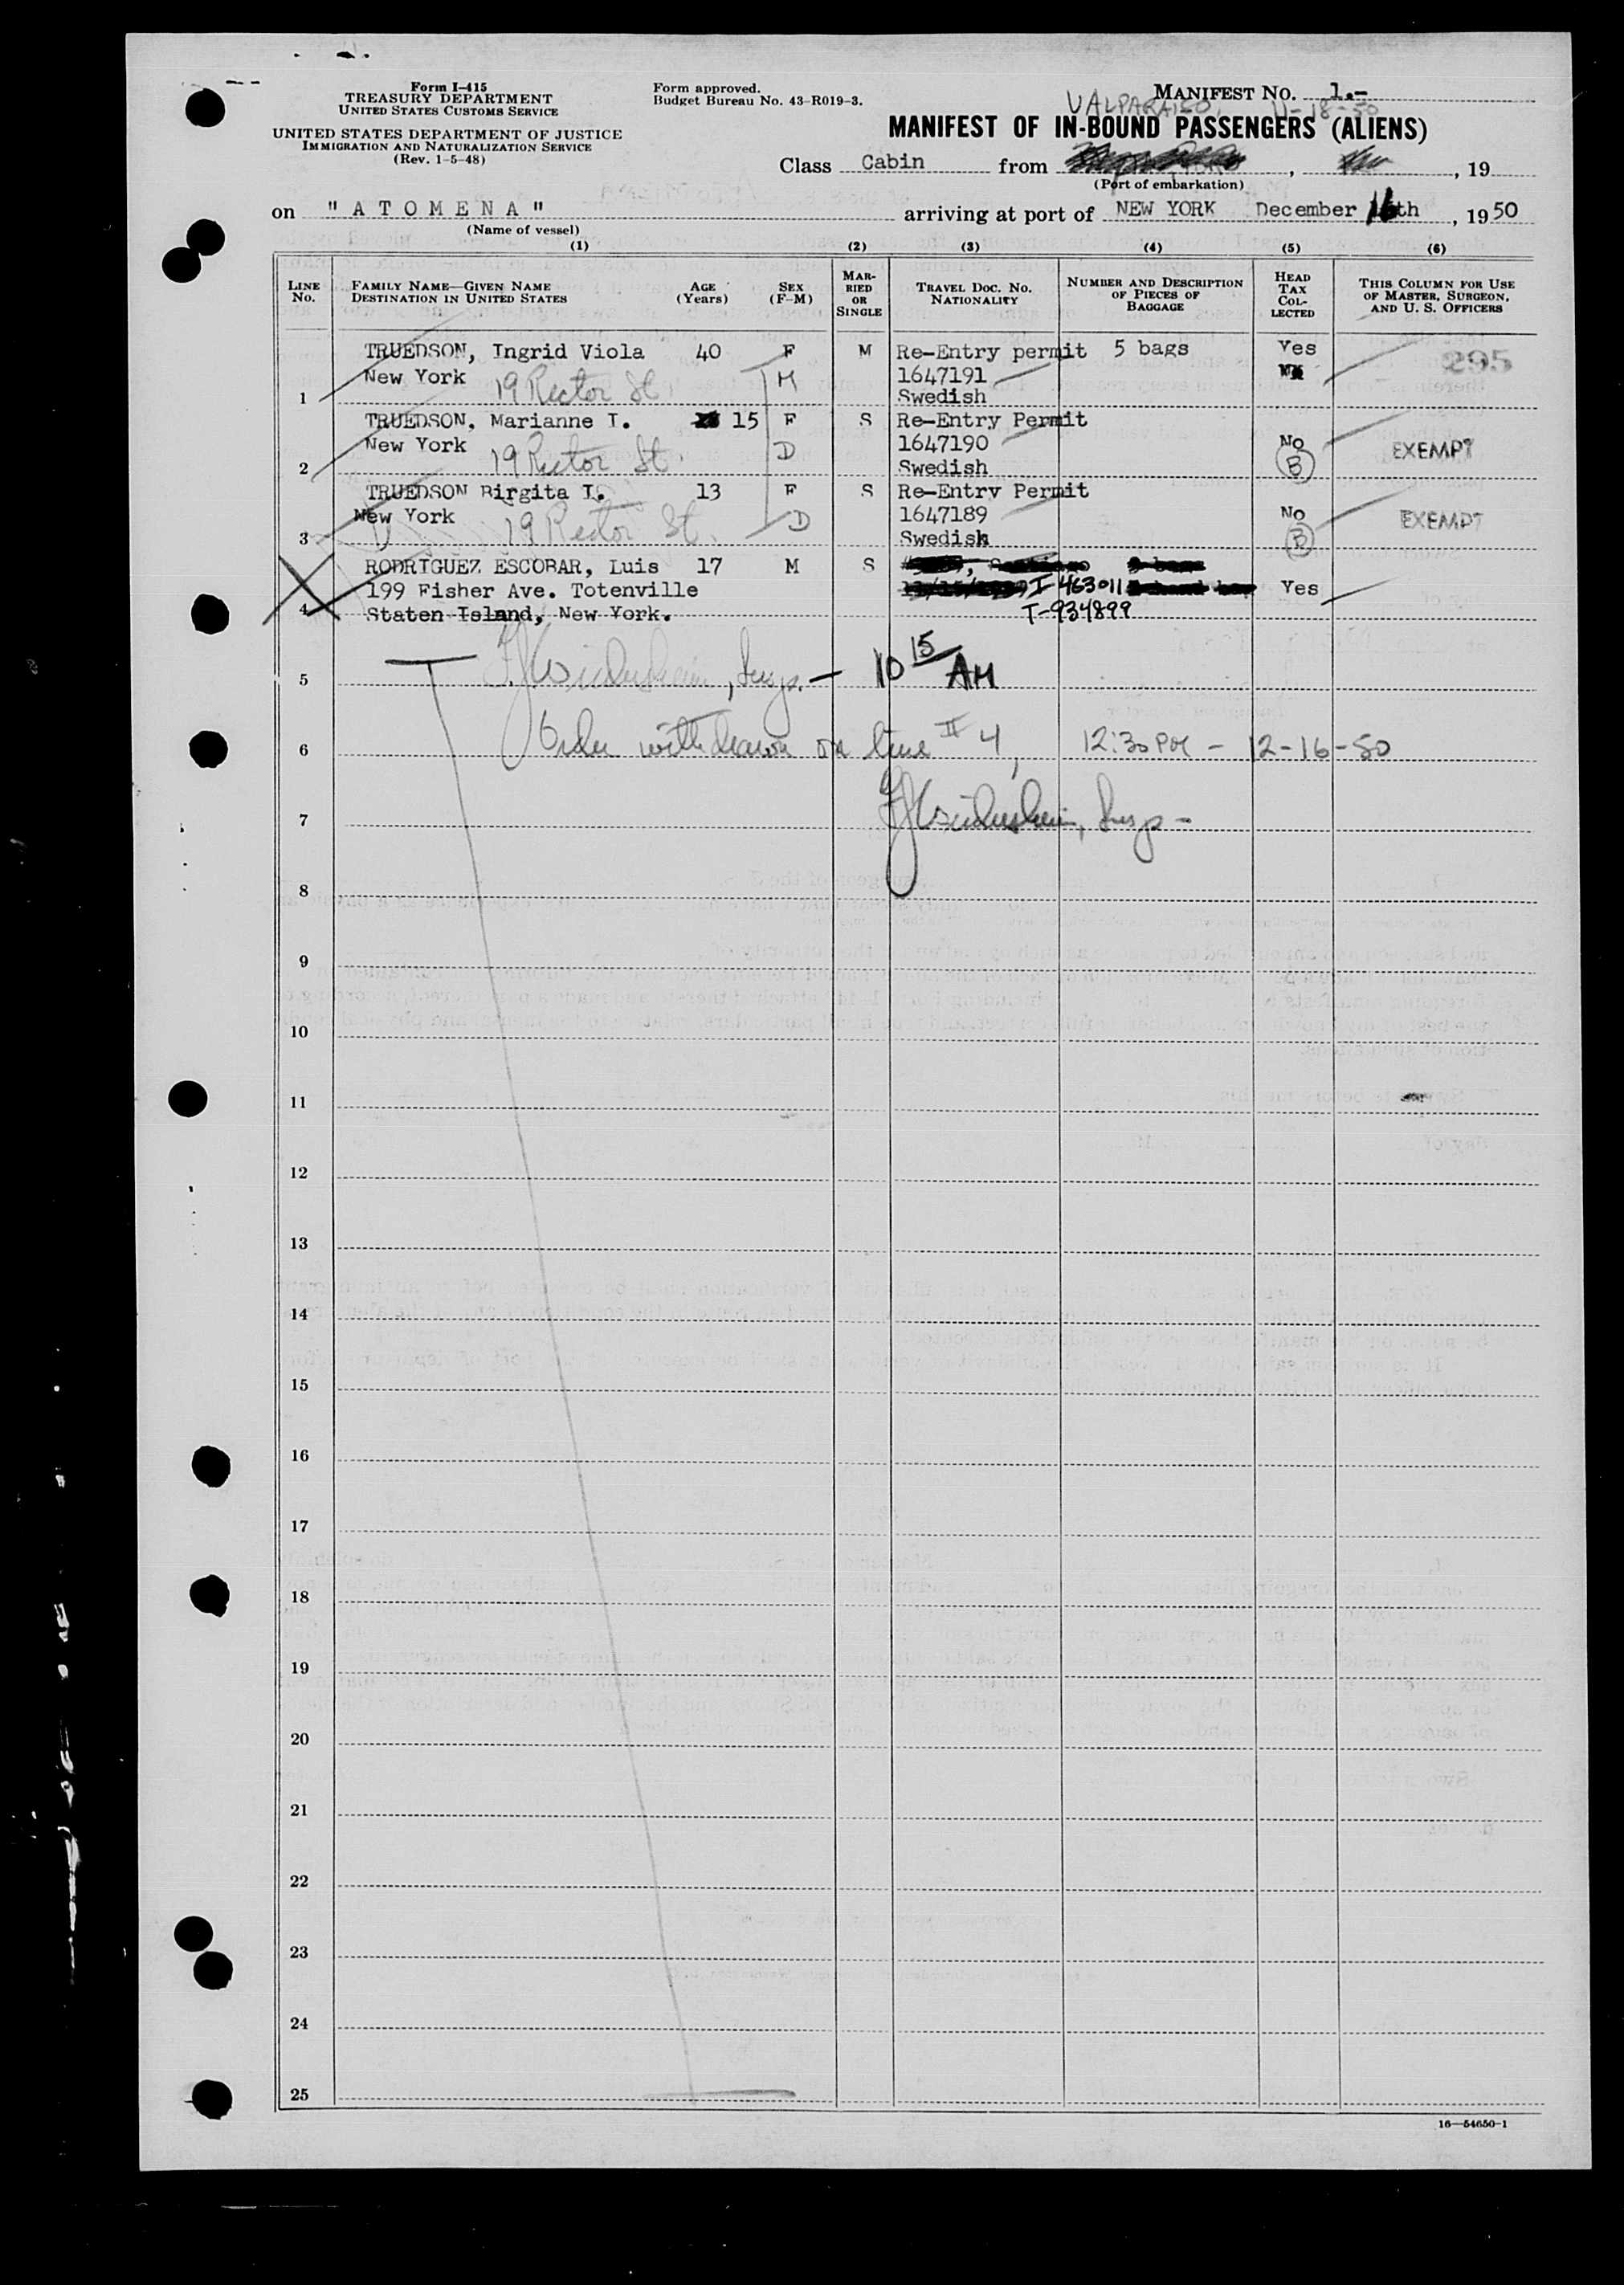 Form I-415
TREASURY DEPARTMENT
UNITED STATES CUSTOMS SERVICE
UNITED STATES DEPARTMENT OF JUSTICE
IMMIGRATION AND NATURALIZATION SERVICE
(Rev. 1-5-48)
Form approved.
Budget Bureau No. 43-R019-3.
MANIFEST NO. 1.-
VALPARAISO, 11-18-50
MANIFEST OF IN-BOUND PASSENGERS (ALIENS)
Class Cabin from , , 19
(Port of embarkation)
on "ATOMENA" arriving at port of NEW YORK December 16th, 1950
(Name of vessel)
(1) (2) (3) (4) (5) (6)
LINE No. FAMILY NAME—GIVEN NAME DESTINATION IN UNITED STATES AGE (Years) SEX (F-M) MARRIED OR SINGLE TRAVEL DOC. NO. NATIONALITY NUMBER AND DESCRIPTION OF PIECES OF BAGGAGE HEAD TAX COLLECTED THIS COLUMN FOR USE OF MASTER, SURGEON, AND U. S. OFFICERS
TRUEDSON, Ingrid Viola 40 F M Re-Entry permit 5 bags Yes 295
New York 19 Rector St. M 1647191
1 Swedish
TRUEDSON, Marianne I. 15 F S Re-Entry Permit
New York 19 Rector St. D 1647190 No EXEMPT
2 Swedish B
TRUEDSON Birgita I. 13 F S Re-Entry Permit
New York 19 Rector St. D 1647189 No EXEMPT
3 Swedish B
RODRIGUEZ ESCOBAR, Luis 17 M S
199 Fisher Ave. Totenville I-463011 Yes
4 Staten Island, New York. T-934899
5 , Insp. - 10 15 AM
6 Order withdrawn on line # 4, 12:30 PM - 12-16-50
7 , Insp -
8
9
10
11
12
13
14
15
16
17
18
19
20
21
22
23
24
25
16—54650-1